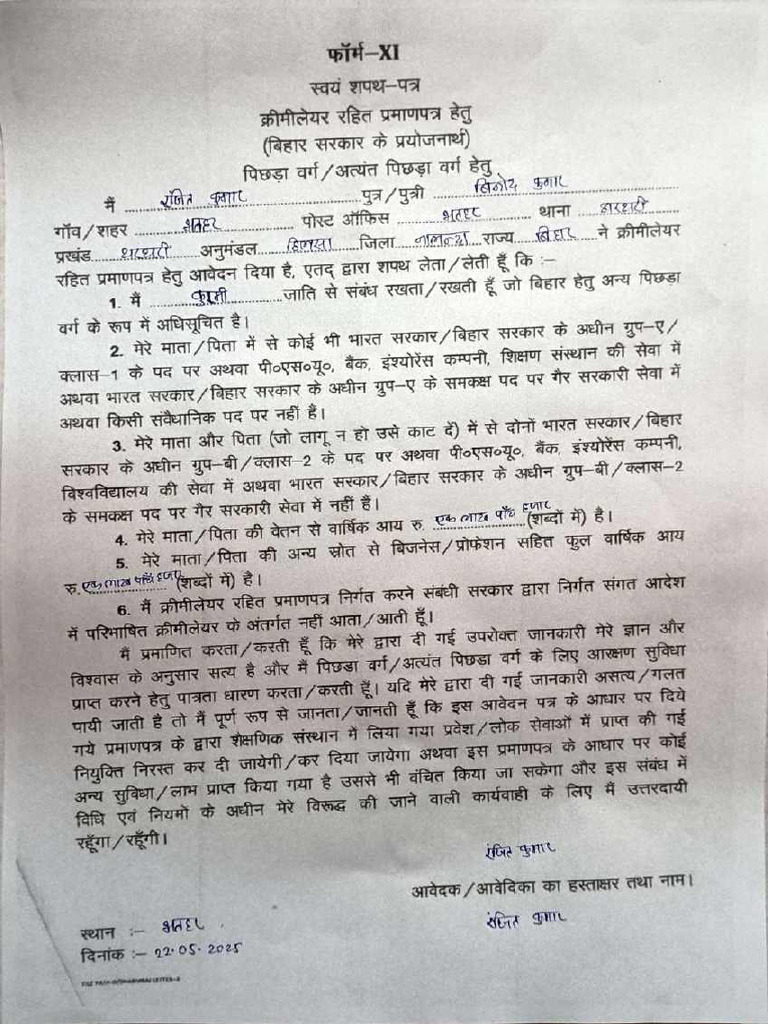 फॉर्म-XI
स्वयं शपथ-पत्र
क्रीमीलेयर रहित प्रमाणपत्र हेतु
(बिहार सरकार के प्रयोजनार्थ)
पिछड़ा वर्ग/अत्यंत पिछड़ा वर्ग हेतु
मैं रंजित कुमार पुत्र/पुत्री बिनोद कुमार
गाँव/शहर भतहर पोस्ट ऑफिस भतहर थाना
प्रखंड थरथरी अनुमंडल हिलसा जिला नालन्दा राज्य बिहार ने क्रीमीलेयर
रहित प्रमाणपत्र हेतु आवेदन दिया है, एतद् द्वारा शपथ लेता/लेती हूँ कि :-
1. मैं कुर्मी जाति से संबंध रखता/रखती हूँ जो बिहार हेतु अन्य पिछड़ा
वर्ग के रूप में अधिसूचित है।
2. मेरे माता/पिता में से कोई भी भारत सरकार/बिहार सरकार के अधीन ग्रुप-ए/
क्लास-1 के पद पर अथवा पी०एस०यू०, बैंक, इंश्योरेंस कम्पनी, शिक्षण संस्थान की सेवा में
अथवा भारत सरकार/बिहार सरकार के अधीन ग्रुप-ए के समकक्ष पद पर गैर सरकारी सेवा में
अथवा किसी संवैधानिक पद पर नहीं हैं।
3. मेरे माता और पिता (जो लागू न हो उसे काट दें) में से दोनों भारत सरकार/बिहार
सरकार के अधीन ग्रुप-बी/क्लास-2 के पद पर अथवा पी०एस०यू०, बैंक, इंश्योरेंस कम्पनी,
विश्वविद्यालय की सेवा में अथवा भारत सरकार/बिहार सरकार के अधीन ग्रुप-बी/क्लास-2
के समकक्ष पद पर गैर सरकारी सेवा में नहीं हैं।
4. मेरे माता/पिता की वेतन से वार्षिक आय रु. एक लाख पाँच हजार (शब्दों में) है।
5. मेरे माता/पिता की अन्य स्रोत से बिजनेस/प्रोफेशन सहित कुल वार्षिक आय
रु. एक लाख पाँच हजार (शब्दों में) है।
6. मैं क्रीमीलेयर रहित प्रमाणपत्र निर्गत करने संबंधी सरकार द्वारा निर्गत संगत आदेश
में परिभाषित क्रीमीलेयर के अंतर्गत नहीं आता/आती हूँ।
मैं प्रमाणित करता/करती हूँ कि मेरे द्वारा दी गई उपरोक्त जानकारी मेरे ज्ञान और
विश्वास के अनुसार सत्य है और मैं पिछडा वर्ग/अत्यंत पिछडा वर्ग के लिए आरक्षण सुविधा
प्राप्त करने हेतु पात्रता धारण करता/करती हूँ। यदि मेरे द्वारा दी गई जानकारी असत्य/गलत
पायी जाती है तो मैं पूर्ण रूप से जानता/जानती हूँ कि इस आवेदन पत्र के आधार पर दिये
गये प्रमाणपत्र के द्वारा शैक्षणिक संस्थान में लिया गया प्रवेश/लोक सेवाओं में प्राप्त की गई
नियुक्ति निरस्त कर दी जायेगी/कर दिया जायेगा अथवा इस प्रमाणपत्र के आधार पर कोई
अन्य सुविधा/लाभ प्राप्त किया गया है उससे भी वंचित किया जा सकेगा और इस संबंध में
विधि एवं नियमों के अधीन मेरे विरूद्ध की जाने वाली कार्यवाही के लिए मैं उत्तरदायी
रहूँगा/रहूँगी।
रंजित कुमार
आवेदक/आवेदिका का हस्ताक्षर तथा नाम।
रंजित कुमार
स्थान :- भतहर
दिनांक :- 22.05.2025